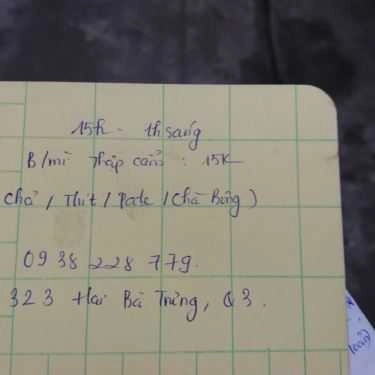 15h - th sang
B/mì thập cẩm : 15K
chả / Thịt / Pate / Chà Bông )
0938 228 779.
323 Hai Bà Trưng, Q3.